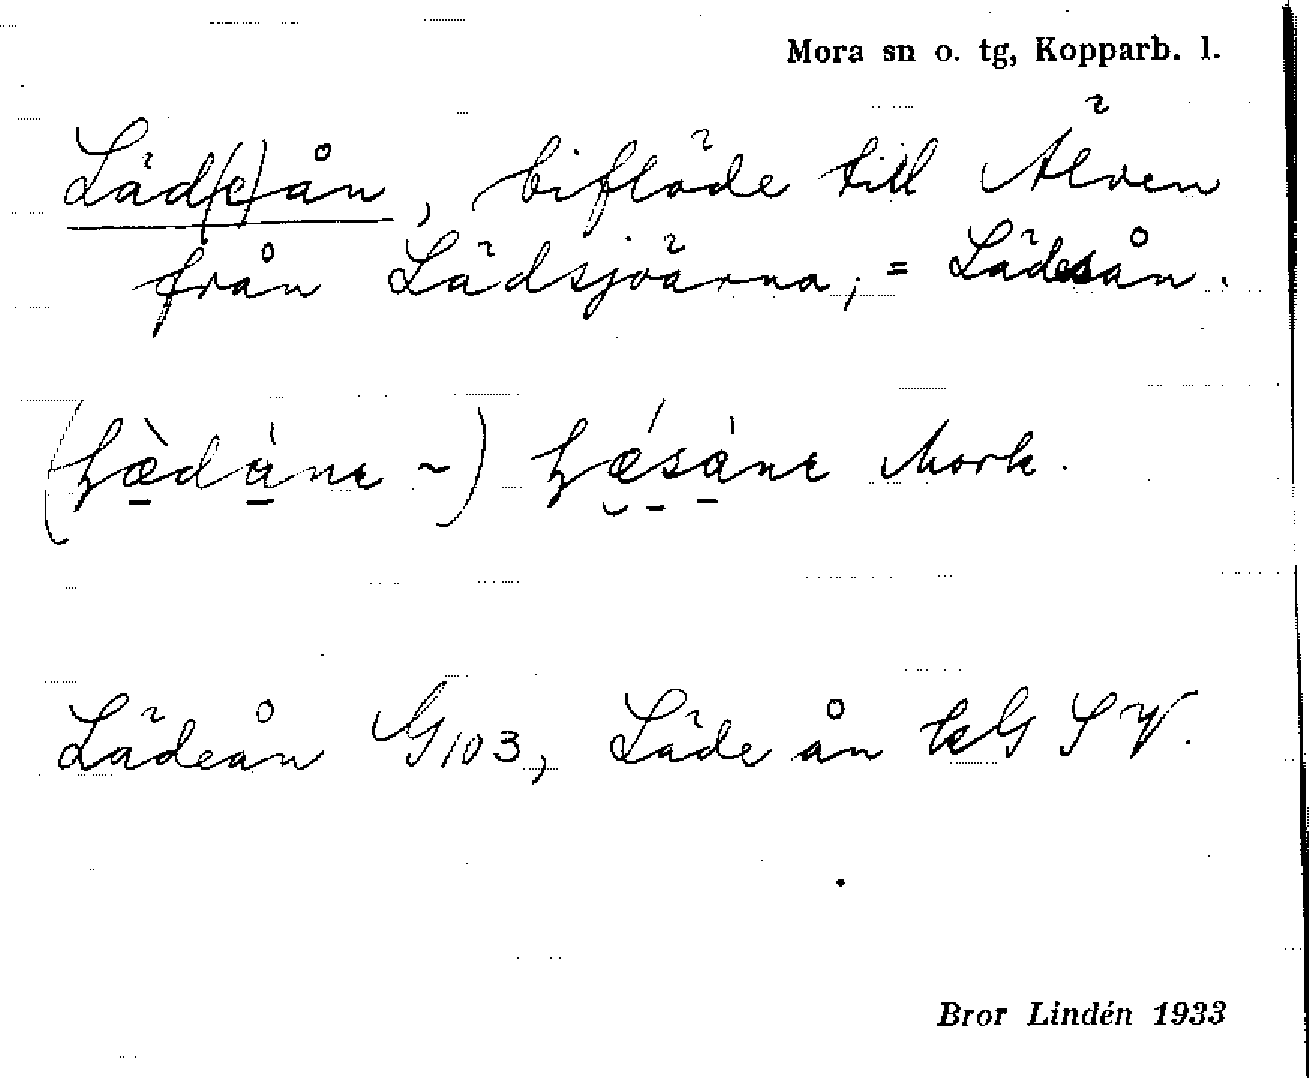 Mora sn o. tg, Kopparb. l.
Läd(e)ån, biflöde till Älven
från Lädsjöarna, = Lädesån.
Mork.
Lädeån G103, Läde ån kG SV.
Bror Lindén 1933